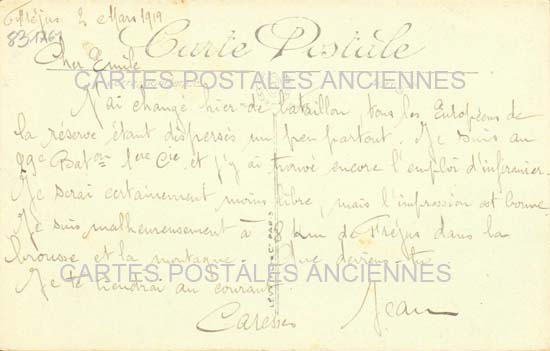 Fréjus 2 Mars 1919
83.1261
Carte Postale
Cher Emile
CARTES POSTALES ANCIENNES
J'ai changé hier de bataillon, tous les Européens de
la réserve étant dispersés un peu partout. Je suis au
99e Baton 1ere Cie et j'y ai trouvé encore l'emploi d'infirmier.
Je serai certainement moins libre, mais l'impression est bonne
Je suis malheureusement à 8 km de Fréjus dans la
brousse et la montagne. Que deviens-tu
CARTES POSTALES ANCIENNES
Je te tiendrai au courant
Caresses Jean